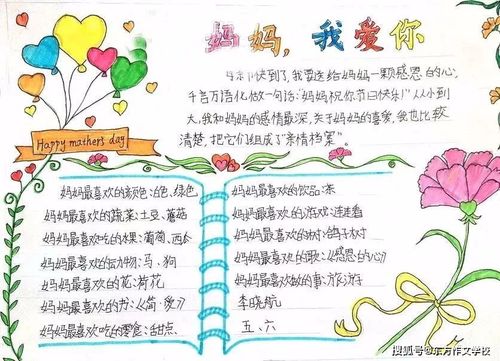 妈妈，我爱你
Happy mathers day
节快到了，我要送给妈妈一颗感恩的心，
千言万语化做一句话：“妈妈祝你节日快乐！”从小到
大，我和妈妈的感情最深，关于妈妈的喜爱，我也比较
清楚，把它们组成了“亲情档案”。
妈妈最喜欢的颜色：白色、绿色
妈妈最喜欢的蔬菜：土豆、蘑菇
妈妈最喜欢吃的水果：葡萄、西
妈妈最喜欢的动物：马、狗
妈妈最喜欢的花：荷花
妈妈最喜欢的书：《简·爱》
妈妈最喜欢吃的零食：甜点
妈妈最喜欢的饮品：茶
妈妈最喜欢的游戏：连连看
妈妈最喜欢的树：鸽子树
妈妈最喜欢的歌：《感恩的心》
妈妈最喜欢做的事：旅游
李晓航
五、六
搜狐号@东方作文学校